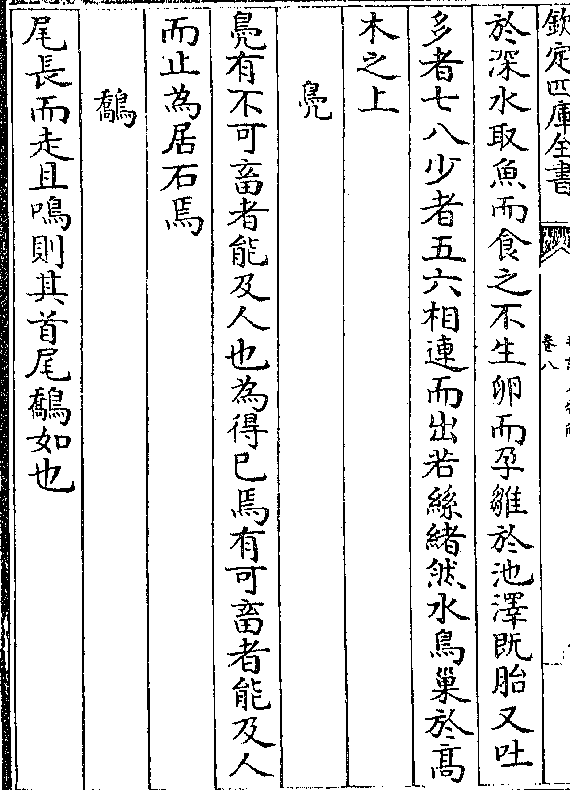 欽定四庫全書
卷八
於深水取魚而食之不生卵而孕雛於池澤既胎又吐
多者七八少者五六相連而出若絲緒然水鳥巢於髙
木之上
鳧
鳧有不可畜者能及人也為得已焉有可畜者能及人
而止為居石焉
鷮
尾長而走且鳴則其首尾鷮如也